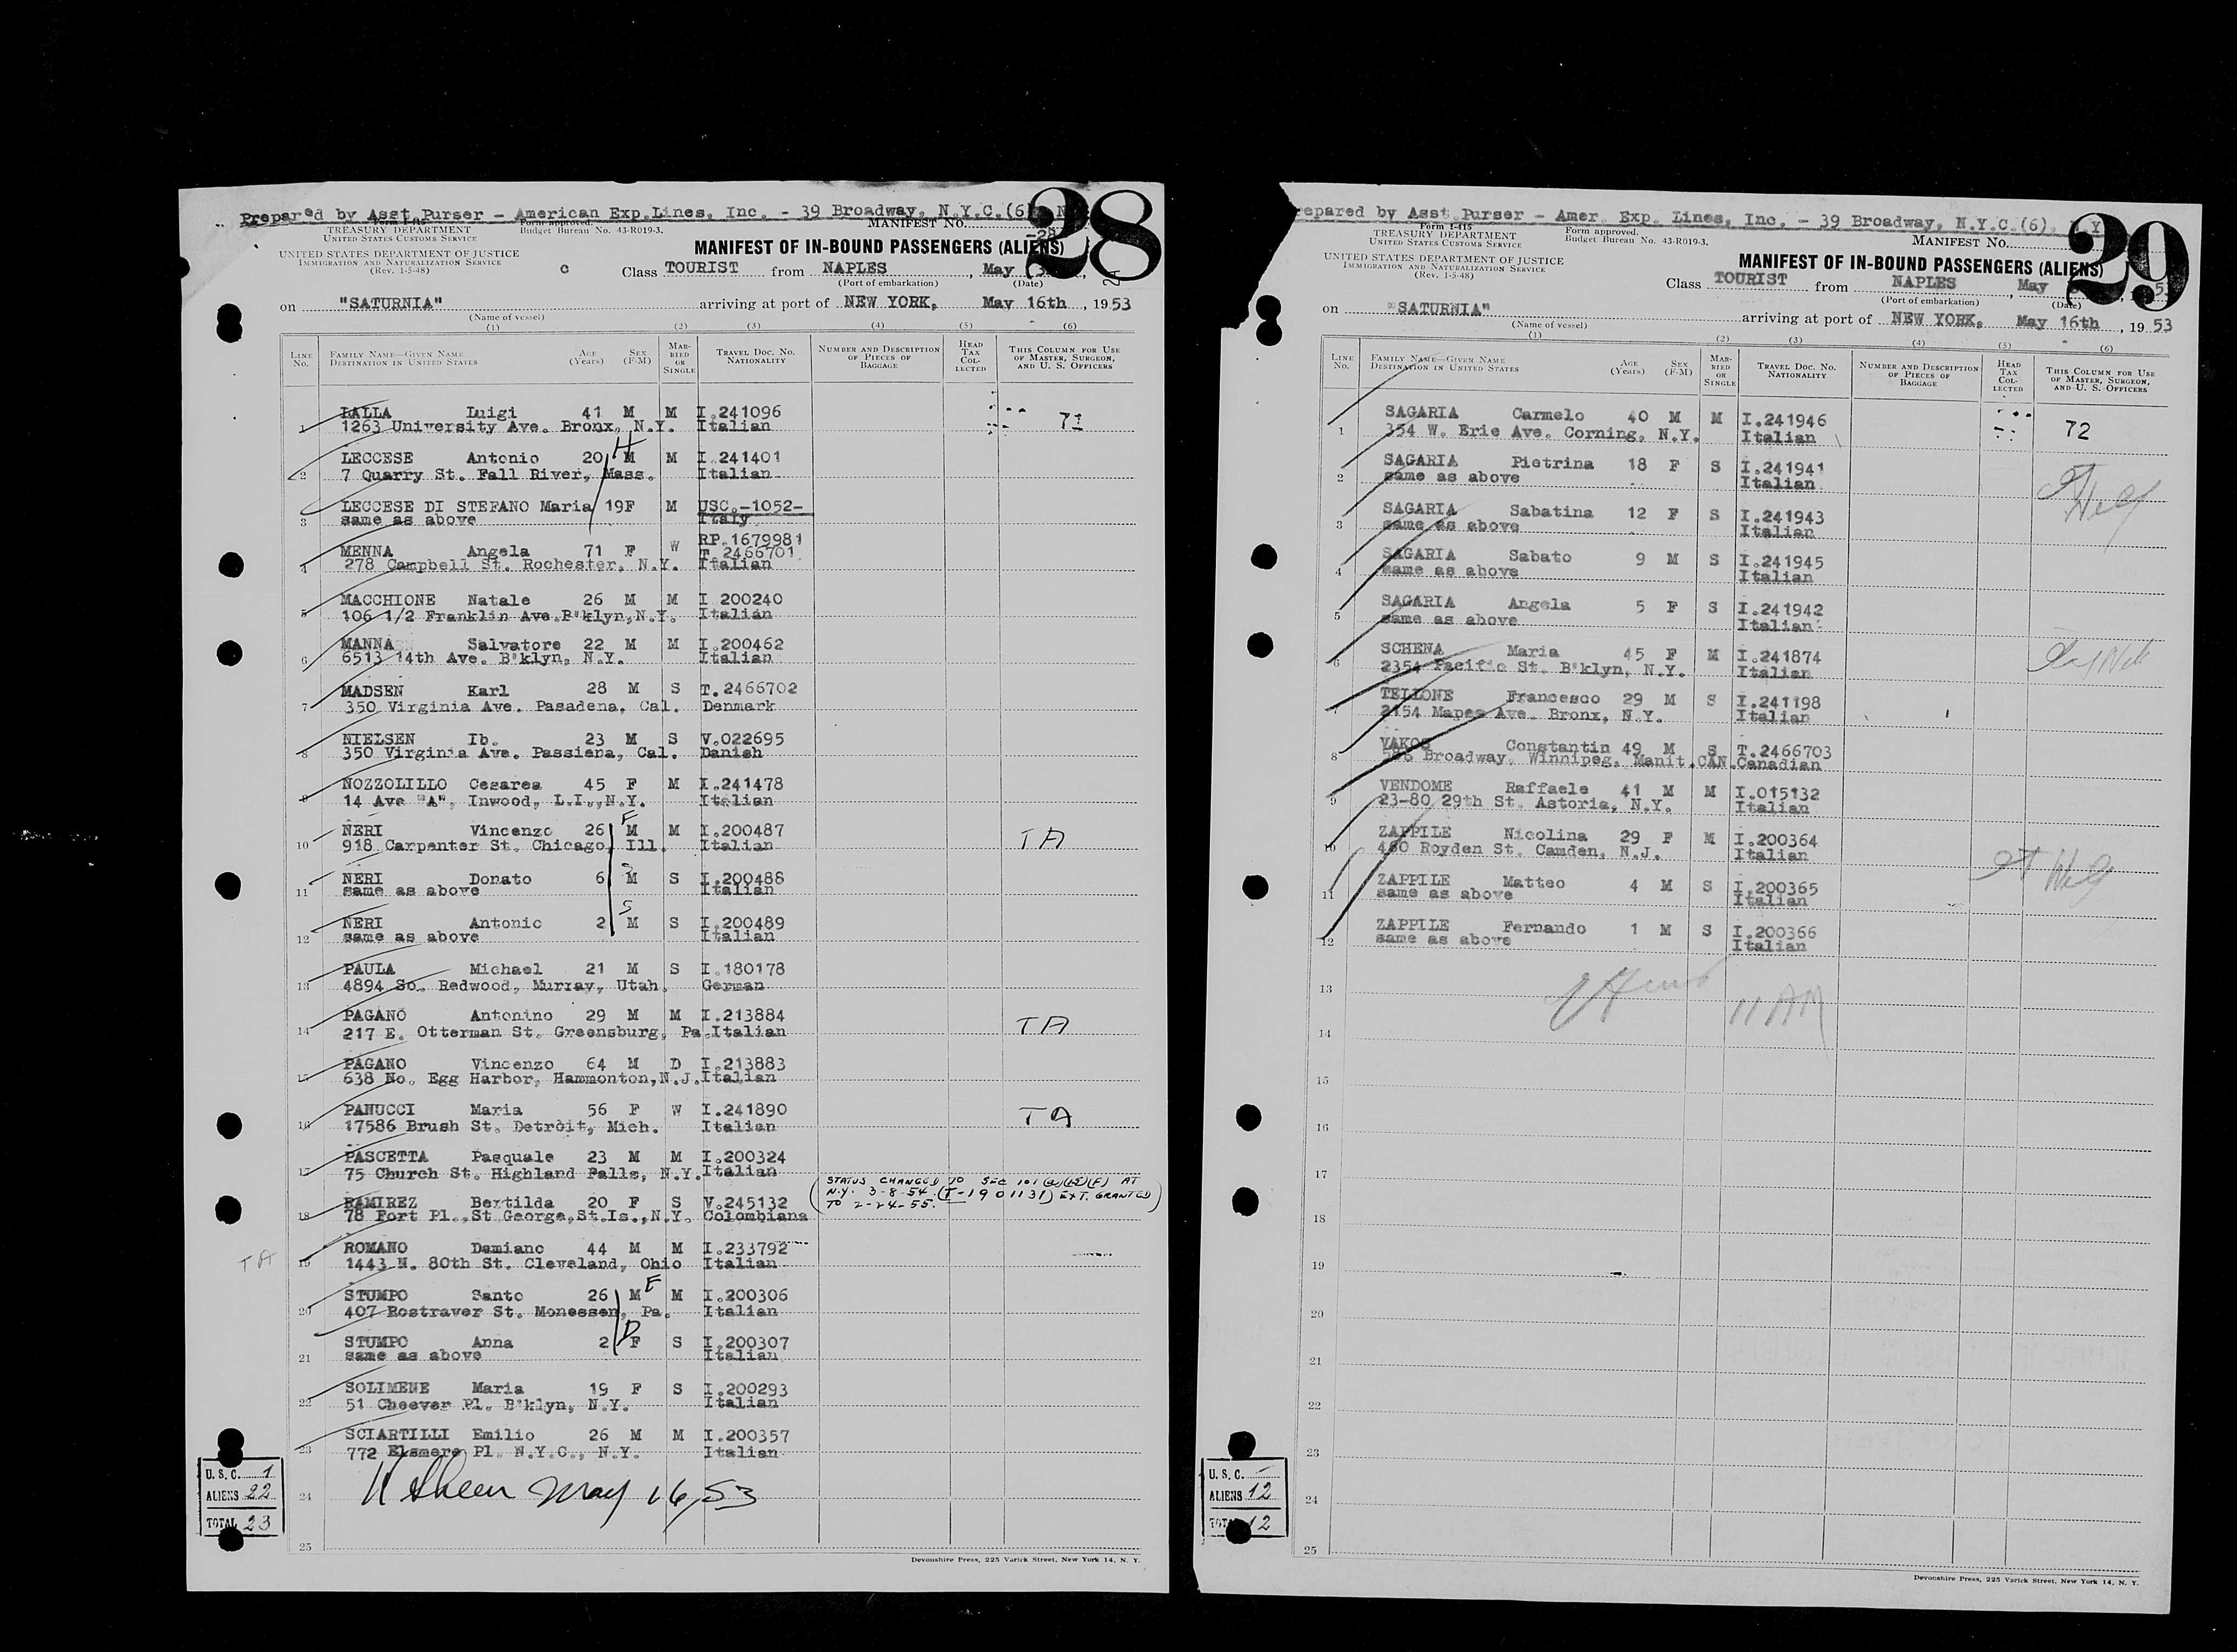 28
Prepared by Asst.Purser - American Exp.Lines, Inc. - 39 Broadway, N.Y.C.(6)
TREASURY DEPARTMENT
UNITED STATES CUSTOMS SERVICE
Form approved.
Budget Bureau No. 43-R019-3.
MANIFEST No.
-28
UNITED STATES DEPARTMENT OF JUSTICE
IMMIGRATION AND NATURALIZATION SERVICE
(Rev. 1-5-48)
MANIFEST OF IN-BOUND PASSENGERS (ALIENS)
c Class TOURIST from NAPLES, May
(Port of embarkation) (Date)
on "SATURNIA" arriving at port of NEW YORK, May 16th, 1953
(Name of vessel)
(1) (2) (3) (4) (5) (6)
LINE No.
FAMILY NAME—GIVEN NAME
DESTINATION IN UNITED STATES
AGE (Years)
SEX (F-M)
MARRIED OR SINGLE
TRAVEL DOC. NO. NATIONALITY
NUMBER AND DESCRIPTION OF PIECES OF BAGGAGE
HEAD TAX COLLECTED
THIS COLUMN FOR USE OF MASTER, SURGEON, AND U. S. OFFICERS
LALLA Luigi 41 M M I.241096 71
1 1263 University Ave. Bronx, N.Y. Italian
H
LECCESE Antonio 20 M M I.241401
2 7 Quarry St. Fall River, Mass. Italian
LECCESE DI STEFANO Maria 19F M USC.-1052-
3 same as above Italy
RP.1679981
MENNA Angela 71 F W T.2466701
4 278 Campbell St. Rochester, N.Y. Italian
MACCHIONE Natale 26 M M I 200240
5 106 1/2 Franklin Ave.B'klyn,N.Y. Italian
MANNA Salvatore 22 M M I.200462
6 6513 14th Ave. B'klyn, N.Y. Italian
MADSEN Karl 28 M S T.2466702
7 350 Virginia Ave. Pasadena, Cal. Denmark
NIELSEN Ib. 23 M S V.022695
8 350 Virginia Ave. Passiena, Cal. Danish
NOZZOLILLO Cesarea 45 F M I.241478
9 14 Ave "A", Inwood, L.I.,N.Y. Italian
F
NERI Vincenzo 26 M M I.200487 TA
10 918 Carpenter St. Chicago, Ill. Italian
S
NERI Donato 6 M S I.200488
11 same as above Italian
S
NERI Antonio 2 M S I.200489
12 same as above Italian
PAULA Michael 21 M S I.180178
13 4894 So. Redwood, Murray, Utah. German
PAGANO Antonino 29 M M I.213884 TA
14 217 E. Otterman St. Greensburg, Pa.Italian
PAGANO Vincenzo 64 M D I.213883
15 638 No. Egg Harbor, Hammonton,N.J.Italian
PANUCCI Maria 56 F W I.241890 TA
16 17586 Brush St. Detroit, Mich. Italian
PASCETTA Pasquale 23 M M I.200324
17 75 Church St. Highland Falls, N.Y.Italian
STATUS CHANGED TO SEC 101 (a)(15)(F) AT
N.Y. 3-8-54. (T-1901131) EXT. GRANTED
TO 2-24-55.
RAMIREZ Bertilda 20 F S V.245132
18 78 Fort Pl. St George,St.Is.,N.Y. Colombiana
ROMANO Damiano 44 M M I.233792
TA 19 1443 N. 80th St. Cleveland, Ohio Italian
F
STUMPO Santo 26 M M I.200306
20 407 Rostraver St. Monessen, Pa. Italian
D
STUMPO Anna 2 F S I.200307
21 same as above Italian
SOLIMENE Maria 19 F S I.200293
22 51 Cheever Pl. B'klyn, N.Y. Italian
SCIARTILLI Emilio 26 M M I.200357
23 772 Elsmere Pl. N.Y.C., N.Y. Italian
24 May 16, 53
25
U.S.C. 1
ALIENS 22
TOTAL 23
Devonshire Press, 225 Varick Street, New York 14, N. Y.
29
repared by Asst.Purser - Amer. Exp. Lines, Inc. - 39 Broadway, N.Y.C.(6).
Form I-415
TREASURY DEPARTMENT
UNITED STATES CUSTOMS SERVICE
Form approved.
Budget Bureau No. 43-R019-3.
MANIFEST No.
UNITED STATES DEPARTMENT OF JUSTICE
IMMIGRATION AND NATURALIZATION SERVICE
(Rev. 1-5-48)
MANIFEST OF IN-BOUND PASSENGERS (ALIENS)
Class TOURIST from NAPLES, May
(Port of embarkation) (Date)
on "SATURNIA" arriving at port of NEW YORK, May 16th, 1953
(Name of vessel)
(1) (2) (3) (4) (5) (6)
LINE No.
FAMILY NAME—GIVEN NAME
DESTINATION IN UNITED STATES
AGE (Years)
SEX (F-M)
MARRIED OR SINGLE
TRAVEL DOC. NO. NATIONALITY
NUMBER AND DESCRIPTION OF PIECES OF BAGGAGE
HEAD TAX COLLECTED
THIS COLUMN FOR USE OF MASTER, SURGEON, AND U. S. OFFICERS
SAGARIA Carmelo 40 M M I.241946 72
1 354 W. Erie Ave. Corning, N.Y. Italian
SAGARIA Pietrina 18 F S I.241941
2 same as above Italian
SAGARIA Sabatina 12 F S I.241943
3 same as above Italian
SAGARIA Sabato 9 M S I.241945
4 same as above Italian
SAGARIA Angela 5 F S I.241942
5 same as above Italian
SCHENA Maria 45 F M I.241874
6 2354 Pacific St. B'klyn, N.Y. Italian
TELLONE Francesco 29 M S I.241198
7 2154 Mapes Ave. Bronx, N.Y. Italian
VAKOS Constantin 49 M S T.2466703
8 Broadway, Winnipeg, Manit.CAN.Canadian
VENDOME Raffaele 41 M M I.015132
9 23-80 29th St. Astoria, N.Y. Italian
ZAPPILE Nicolina 29 F M I.200364
10 460 Royden St. Camden, N.J. Italian
ZAPPILE Matteo 4 M S I.200365
11 same as above Italian
ZAPPILE Fernando 1 M S I.200366
12 same as above Italian
13 11 AM
14
15
16
17
18
19
20
21
22
23
24
25
U.S.C. -
ALIENS 12
TOTAL 12
Devonshire Press, 225 Varick Street, New York 14, N. Y.